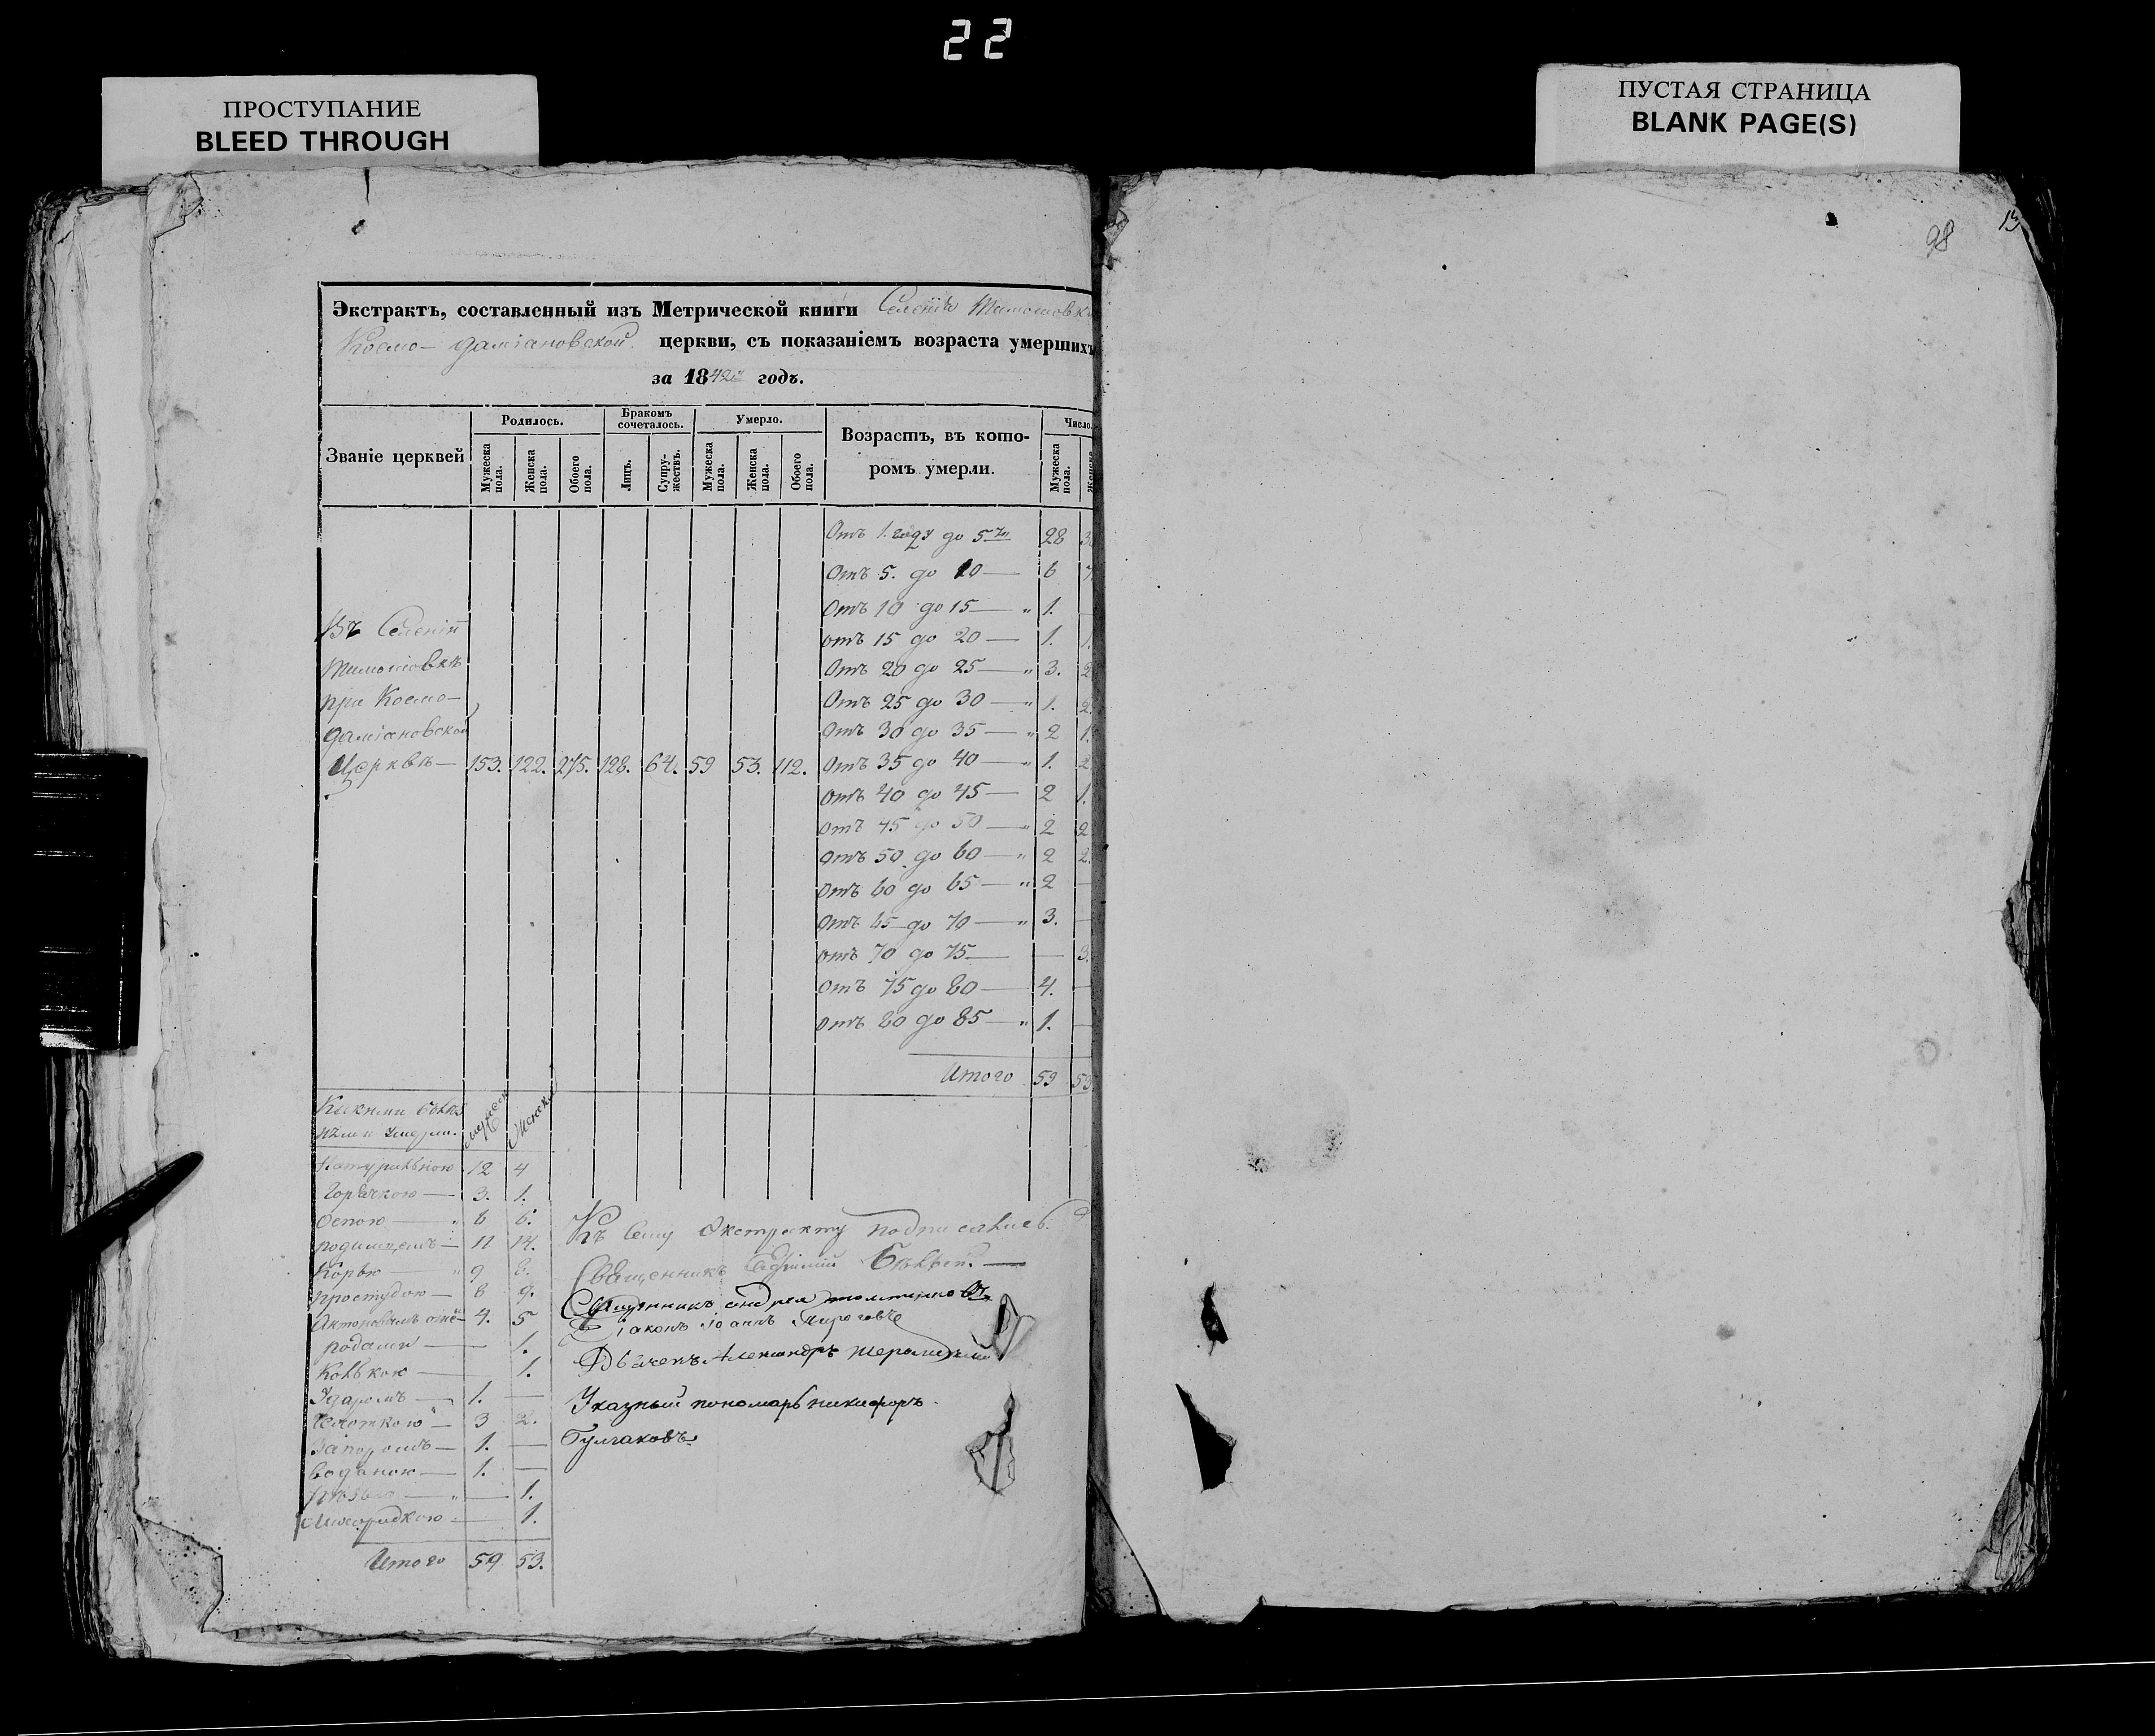 22
ПРОСТУПАНИЕ
BLEED THROUGH
ПУСТАЯ СТРАНИЦА
BLANK PAGE(S)
98
Экстрактъ, составленный изъ Метрической книги Селенія Тимошовки
Космо-даміановской церкви, съ показаніемъ возраста умершихъ
за 1842й годъ.
Званіе церквей
Родилось.
Бракомъ сочеталось.
Умерло.
Возрастъ, въ которомъ умерли.
Число.
Мужеска пола.
Женска пола.
Обоего пола.
Лицъ.
Супружествъ.
Мужеска пола.
Женска пола.
Обоего пола.
Мужеска пола.
Женска
Отъ 1. году до 5ти 28
Отъ 5. до 10 — 6 7.
Отъ 10 до 15 — „ 1. —
Въ Селеніи
отъ 15 до 20 — 1. 1.
Тимошовкѣ
Отъ 20 до 25 — „ 3. 2
при Космо-
Отъ 25 до 30 — „ 1. 2.
даміановской
Отъ 30 до 35 — „ 2 1.
Церквѣ — 153. 122. 275. 128. 64. 59 53. 112. Отъ 35 до 40 — „ 1. 2
отъ 40 до 45 — 2 1.
отъ 45 до 50 — „ 2 2
отъ 50 до 60 — „ 2 2.
отъ 60 до 65 — „ 2 —
отъ 65 до 70 — „ 3. —
отъ 70 до 75 — — 3.
отъ 75 до 80 — 4. —
отъ 80 до 85 — „ 1. —
Итого 59 53
Какими болѣз
нями умерли.
Мужеск Женска
Натуральною 12 4
Горячкою — 3. 1.
Оспою — „ 6 6.
родимцемъ — 11 14.
Корью — „ 9 8.
простудою — 8 9.
Антоновымъ огнё- 4. 5
родами — — 1.
Коликою — 1.
Ударомъ — 1. —
Чахоткою — 3 2.
Запоромъ — 1. —
Водяною — 1. —
— „ — 1.
Лихорадкою — — 1.
Итого 59 53.
Къ сему Экстракту подписались.
Священникъ
Священникъ Андрей
Діаконъ Іоаннъ Пироговъ
Дьячекъ Александръ
Указный пономарь Никифоръ
Булгаковъ